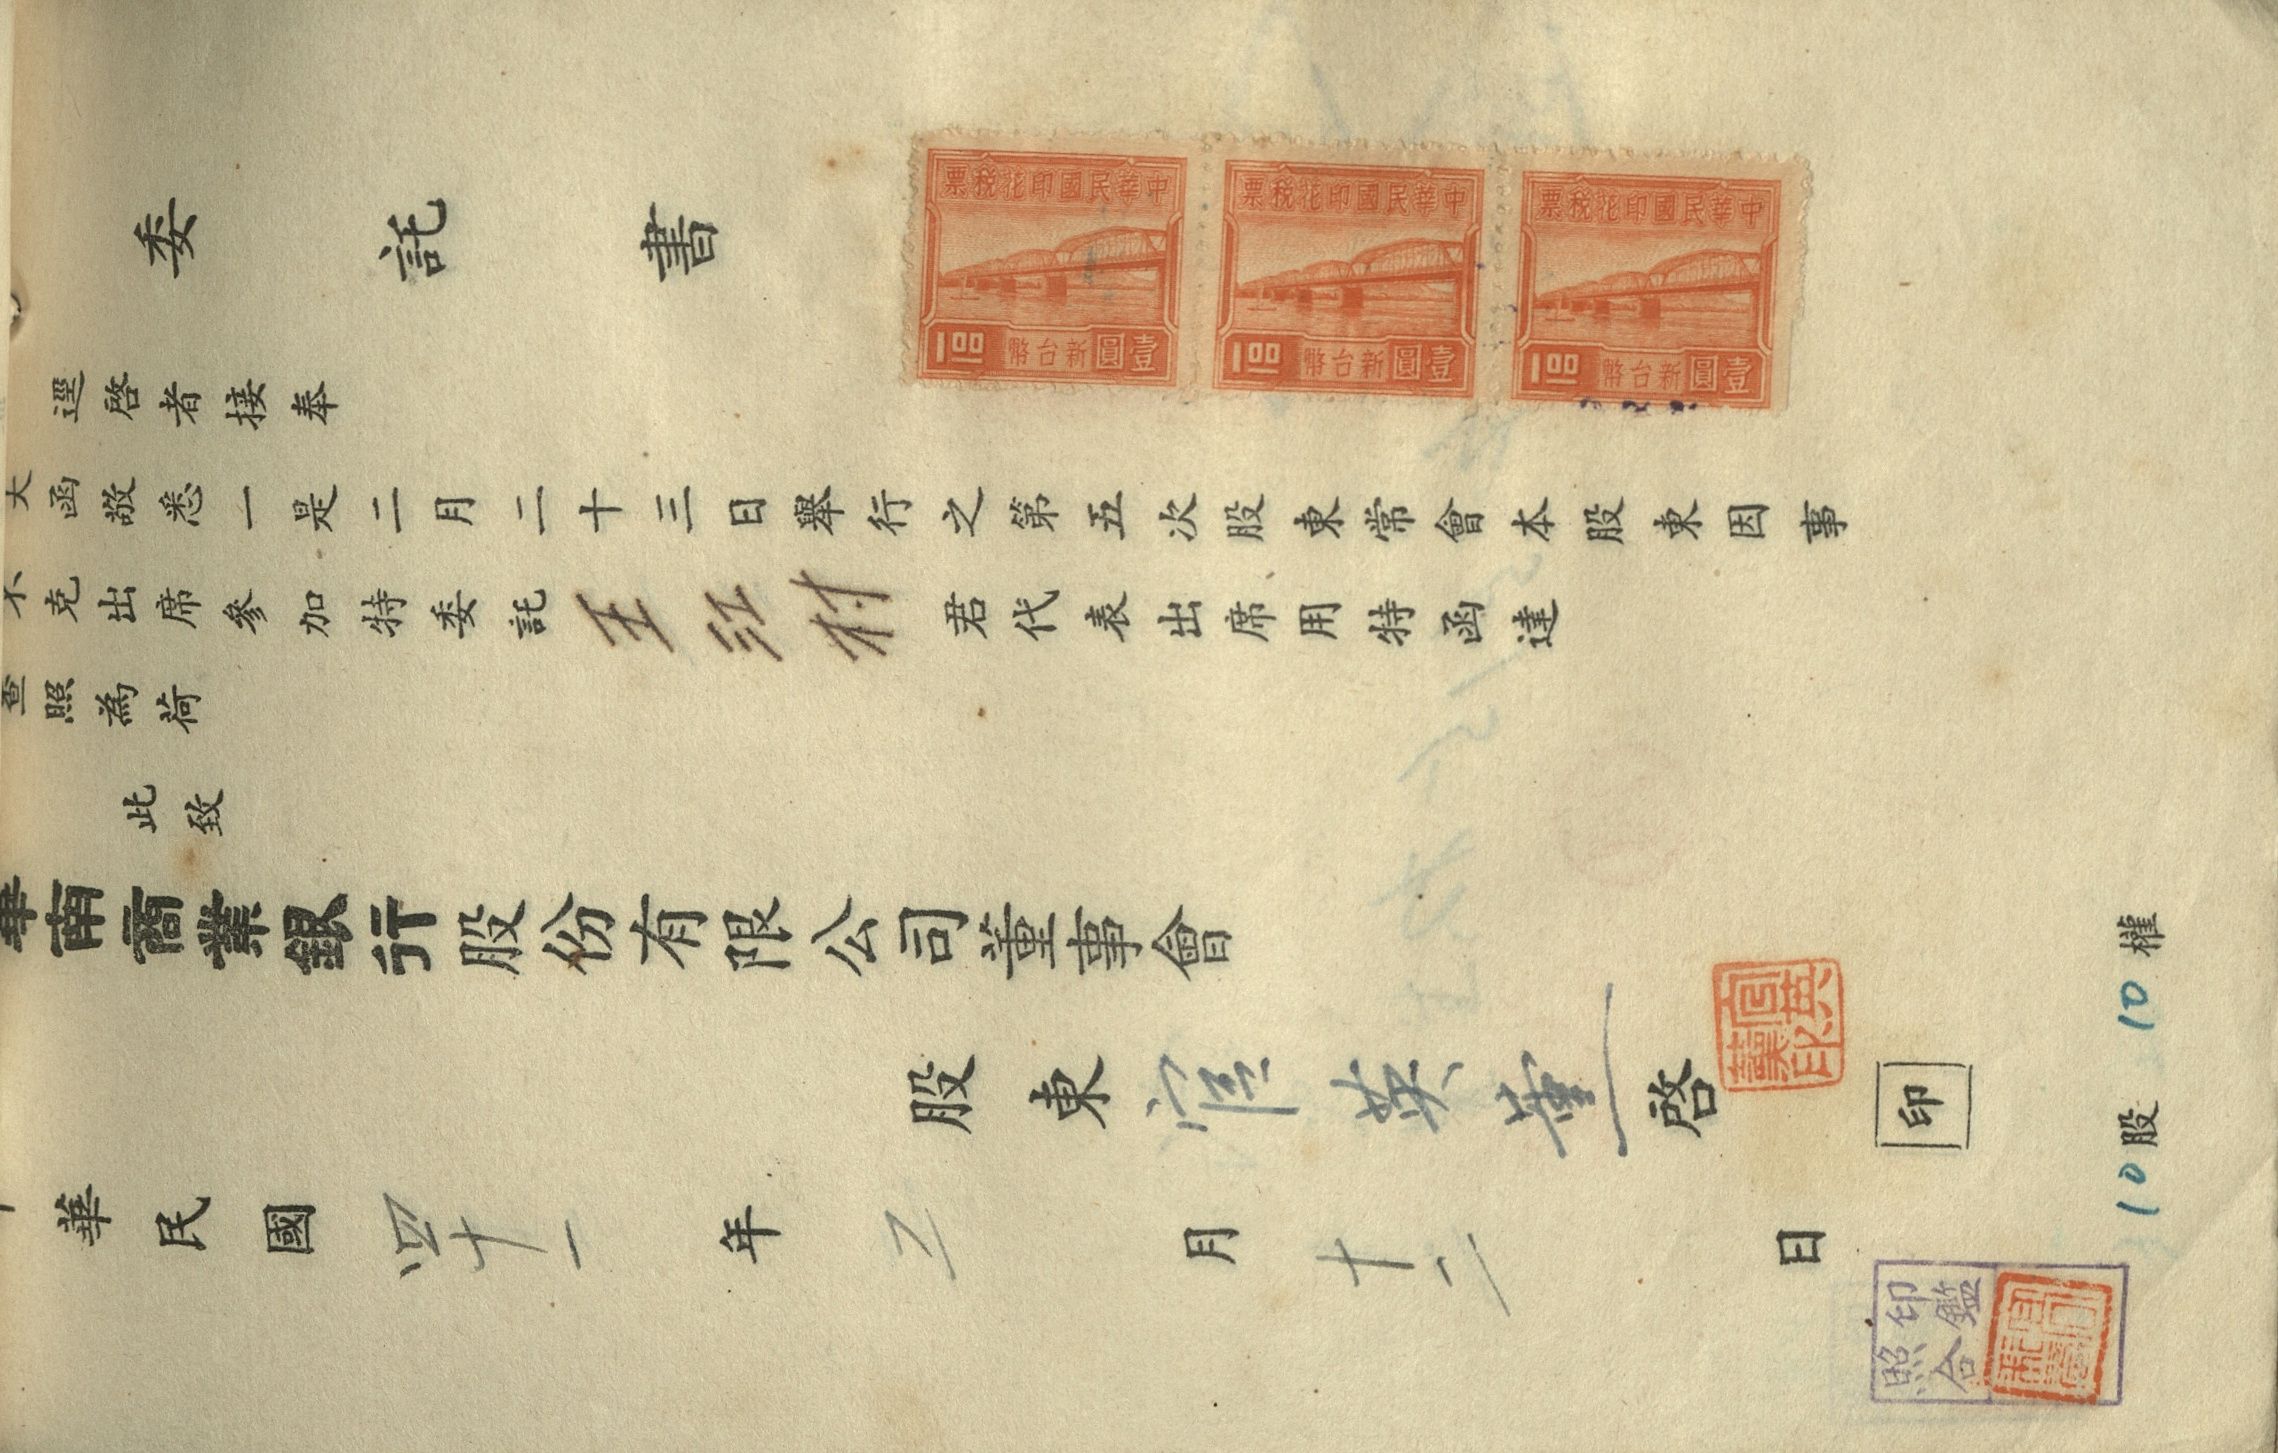 委託書
逕啓者接奉
大函敬悉一是二月二十三日舉行之第五次股東常會本股東因事
不克出席參加特委託王紅村君代表出席用特函達
查照為荷
此致
華南商業銀行股份有限公司董事會
股東 英董 啓
印
華民國四十一年二月十二日
10股 10權
中華民國印花稅票
壹圓新台幣 1.00
中華民國印花稅票
壹圓新台幣 1.00
中華民國印花稅票
壹圓新台幣 1.00
印鑑
照合